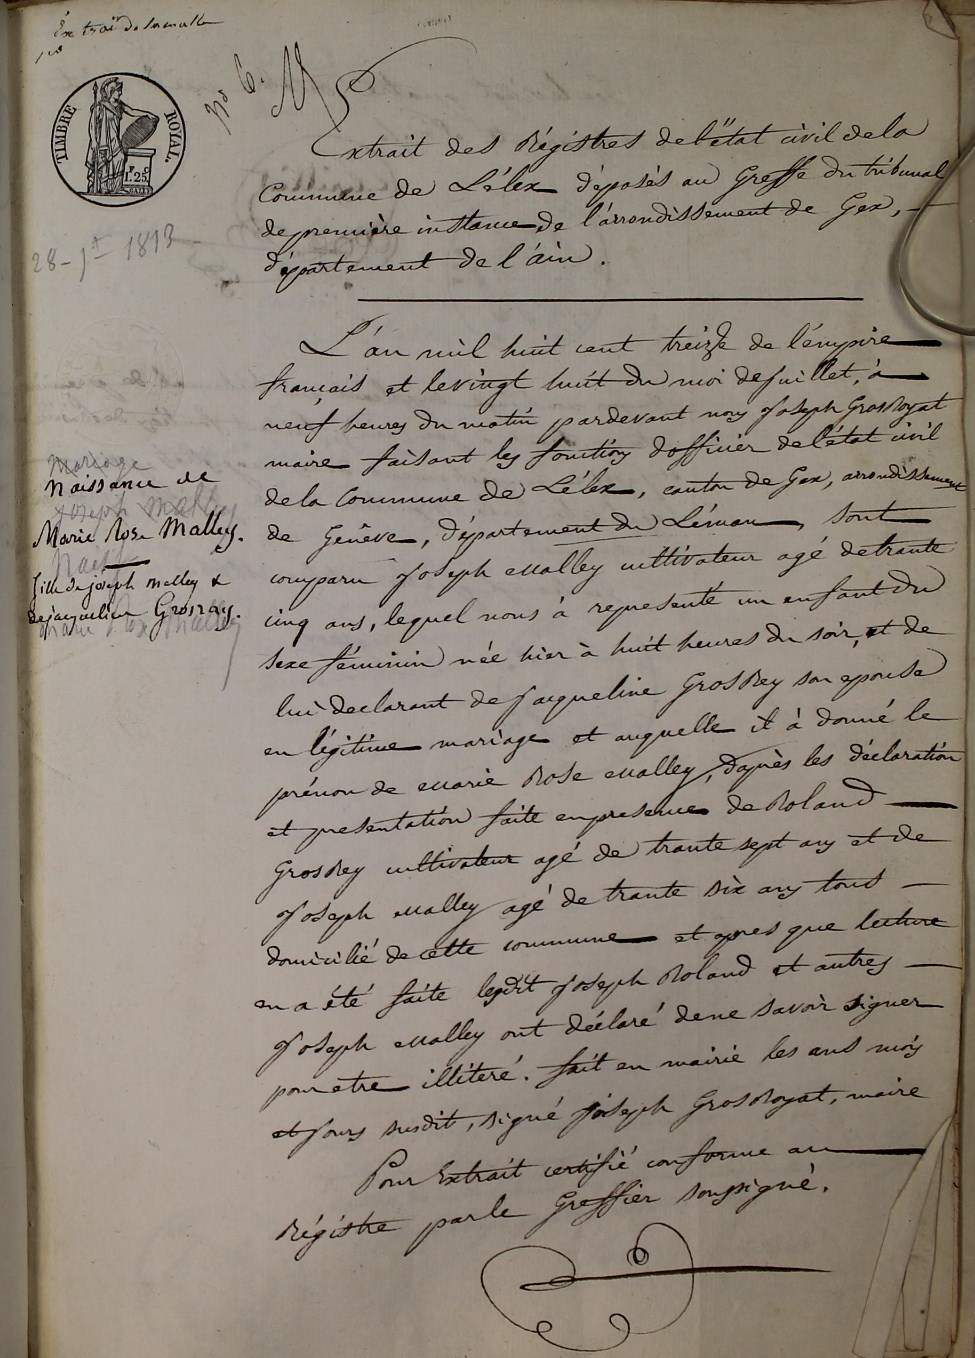 Extrait de la malle
no 6.
TIMBRE ROYAL.
1.25
Extrait des Régistres de l'état civil de la
Commune de Lélex déposés au Greffe du tribunal
de première instance de l'arrondissement de Gex,
département de l'ain.
28 - jt 1813
L'an mil huit cent treize de l'émpire
français et le vingt huit du moi de juillet, à
neuf heures du matin pardevant nous Joseph GrosRoyat
maire faisant les fonctions d'officier de l'état civil
de la Commune de Lélex, canton de Gex, arrondissement
de Genêve, département du Léman, sont
comparu Joseph Malley cultivateur agé de trante
cinq ans, lequel nous à representé un enfant du
sexe féminin née hier à huit heures du soir, et de
lui declarant de Jaiqueline GrosRey son epouse
en légitime mariage et auquelle il à donné le
prénon de Marie Rose Malley, d'après les déclaration
et presentation faite en presence de Roland
GrosRey cultivateur agé de trante sept ans et de
Joseph Malley agé de trante six ans tous
domicilié de cette commune et apres que lecture
en a été faite lesdit Joseph Roland et autres
Joseph Malley ont déclaré de ne savoir signer
pour etre illiteré. fait en mairie les ans mois
et jours susdit, signé Joseph GrosRoyat, maire
Pour Extrait certifié conforme au
Régistre par le Greffier soussigné.
Mariage
Naissance de
Joseph Malley
Marie Rose Malley.
Naiss
fille de joseph malley &
de jacqueline Grosrey.
Marie Rose Malley